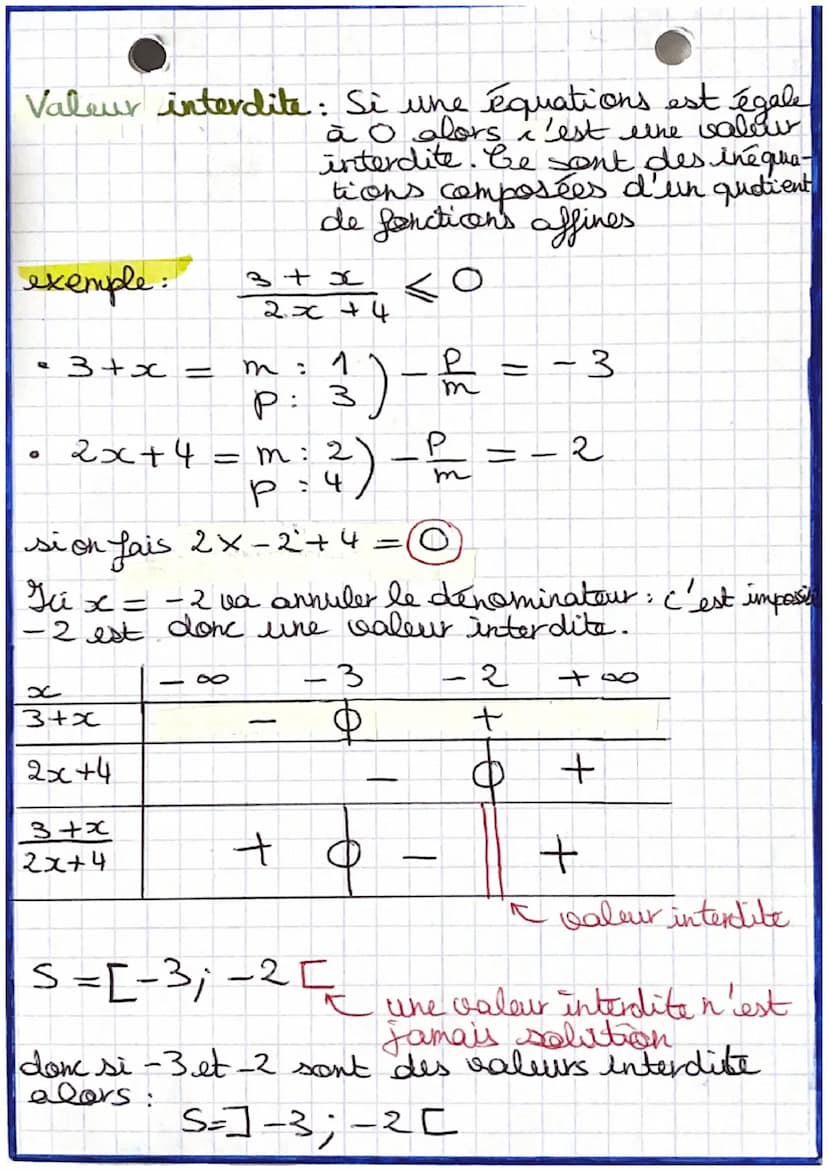 Valeur interdite : Si une équations est égale
à 0 alors c'est une valeur
interdite. Ce sont des inéqua-
tions composées d'un quotient
de fonctions affines
exemple : (3 + x)/(2x + 4) ⩽ 0
• 3+x = m : 1 p : 3 ) - p/m = - 3
• 2x+4 = m : 2 p : 4 ) - p/m = - 2
si on fais 2x-2+4 = 0
Ici x = -2 va annuler le dénominateur : c'est
-2 est donc une valeur interdite.
x -∞ -3 -2 +∞
3+x - 0 +
2x+4 - 0 +
(3+x)/(2x+4) + 0 - || +
valeur interdite
S = [-3 ; -2 [
une valeur interdite n'est
jamais solution
donc si -3 et -2 sont des valeurs interdite
alors :
S=]-3 ; -2 [